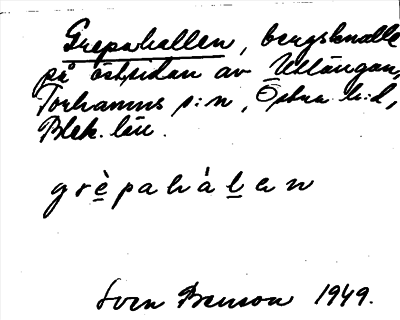 Grepahallen, bergsknalle
på östsidan av Utlängan,
Torhamns s:n, Östra h:d,
Blek. län.
grèpahàlen
Sven Benson 1949.